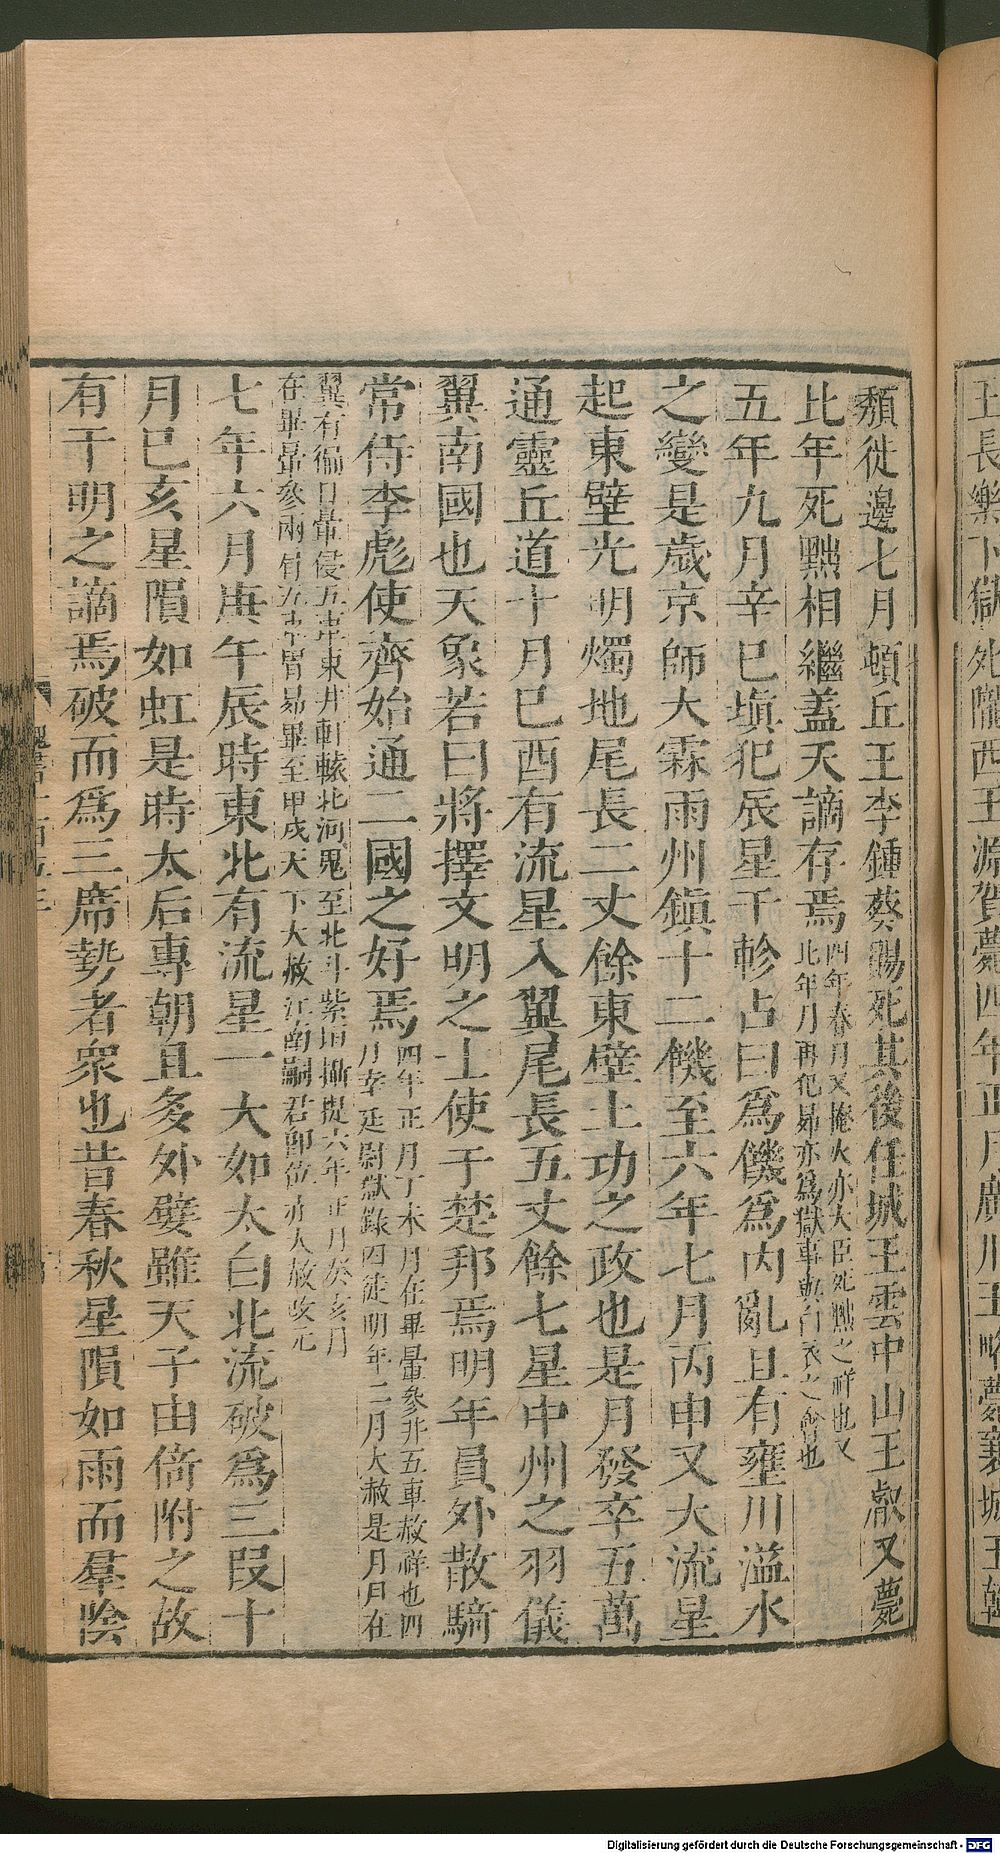 王長樂下獄死隴西王源賀薨四年正月廣川王略薨襄城王韓
頽徙邊七月頓丘王李鍾葵賜死其後任城王雲中山王叡又薨
比年死黜相繼蓋天謫存焉
四年春月又掩火亦大臣死黜之祥也又
比年月再犯昴亦爲獄事與白衣之會也
五年九月辛巳塡犯辰星于軫占曰爲饑爲內亂且有壅川溢水
之變是歲京師大霖雨州鎮十二饑至六年七月丙申又大流星
起東壁光明燭地尾長二丈餘東壁土功之政也是月發卒五萬
通靈丘道十月己酉有流星入翼尾長五丈餘七星中州之羽儀
翼南國也天象若曰將擇文明之士使于楚邦焉明年員外散騎
常侍李彪使齊始通二國之好焉
四年正月丁未月在畢暈參井五車赦祥也四
月幸廷尉獄錄囚徒明年二月大赦是月月在
翼有偏日暈侵五車東井軒轅北河鬼至北斗紫垣攝提六年正月癸亥月
在畢暈參兩肩五車胃昴畢至甲戌天下大赦江南嗣君卽位亦大赦改元
七年六月庚午辰時東北有流星一大如太白北流破爲三段十
月己亥星隕如虹是時太后專朝且多外嬖雖天子由倚附之故
有干明之謫焉破而爲三席勢者衆也昔春秋星隕如雨而羣陰
Digitalisierung gefördert durch die Deutsche Forschungsgemeinschaft - DFG